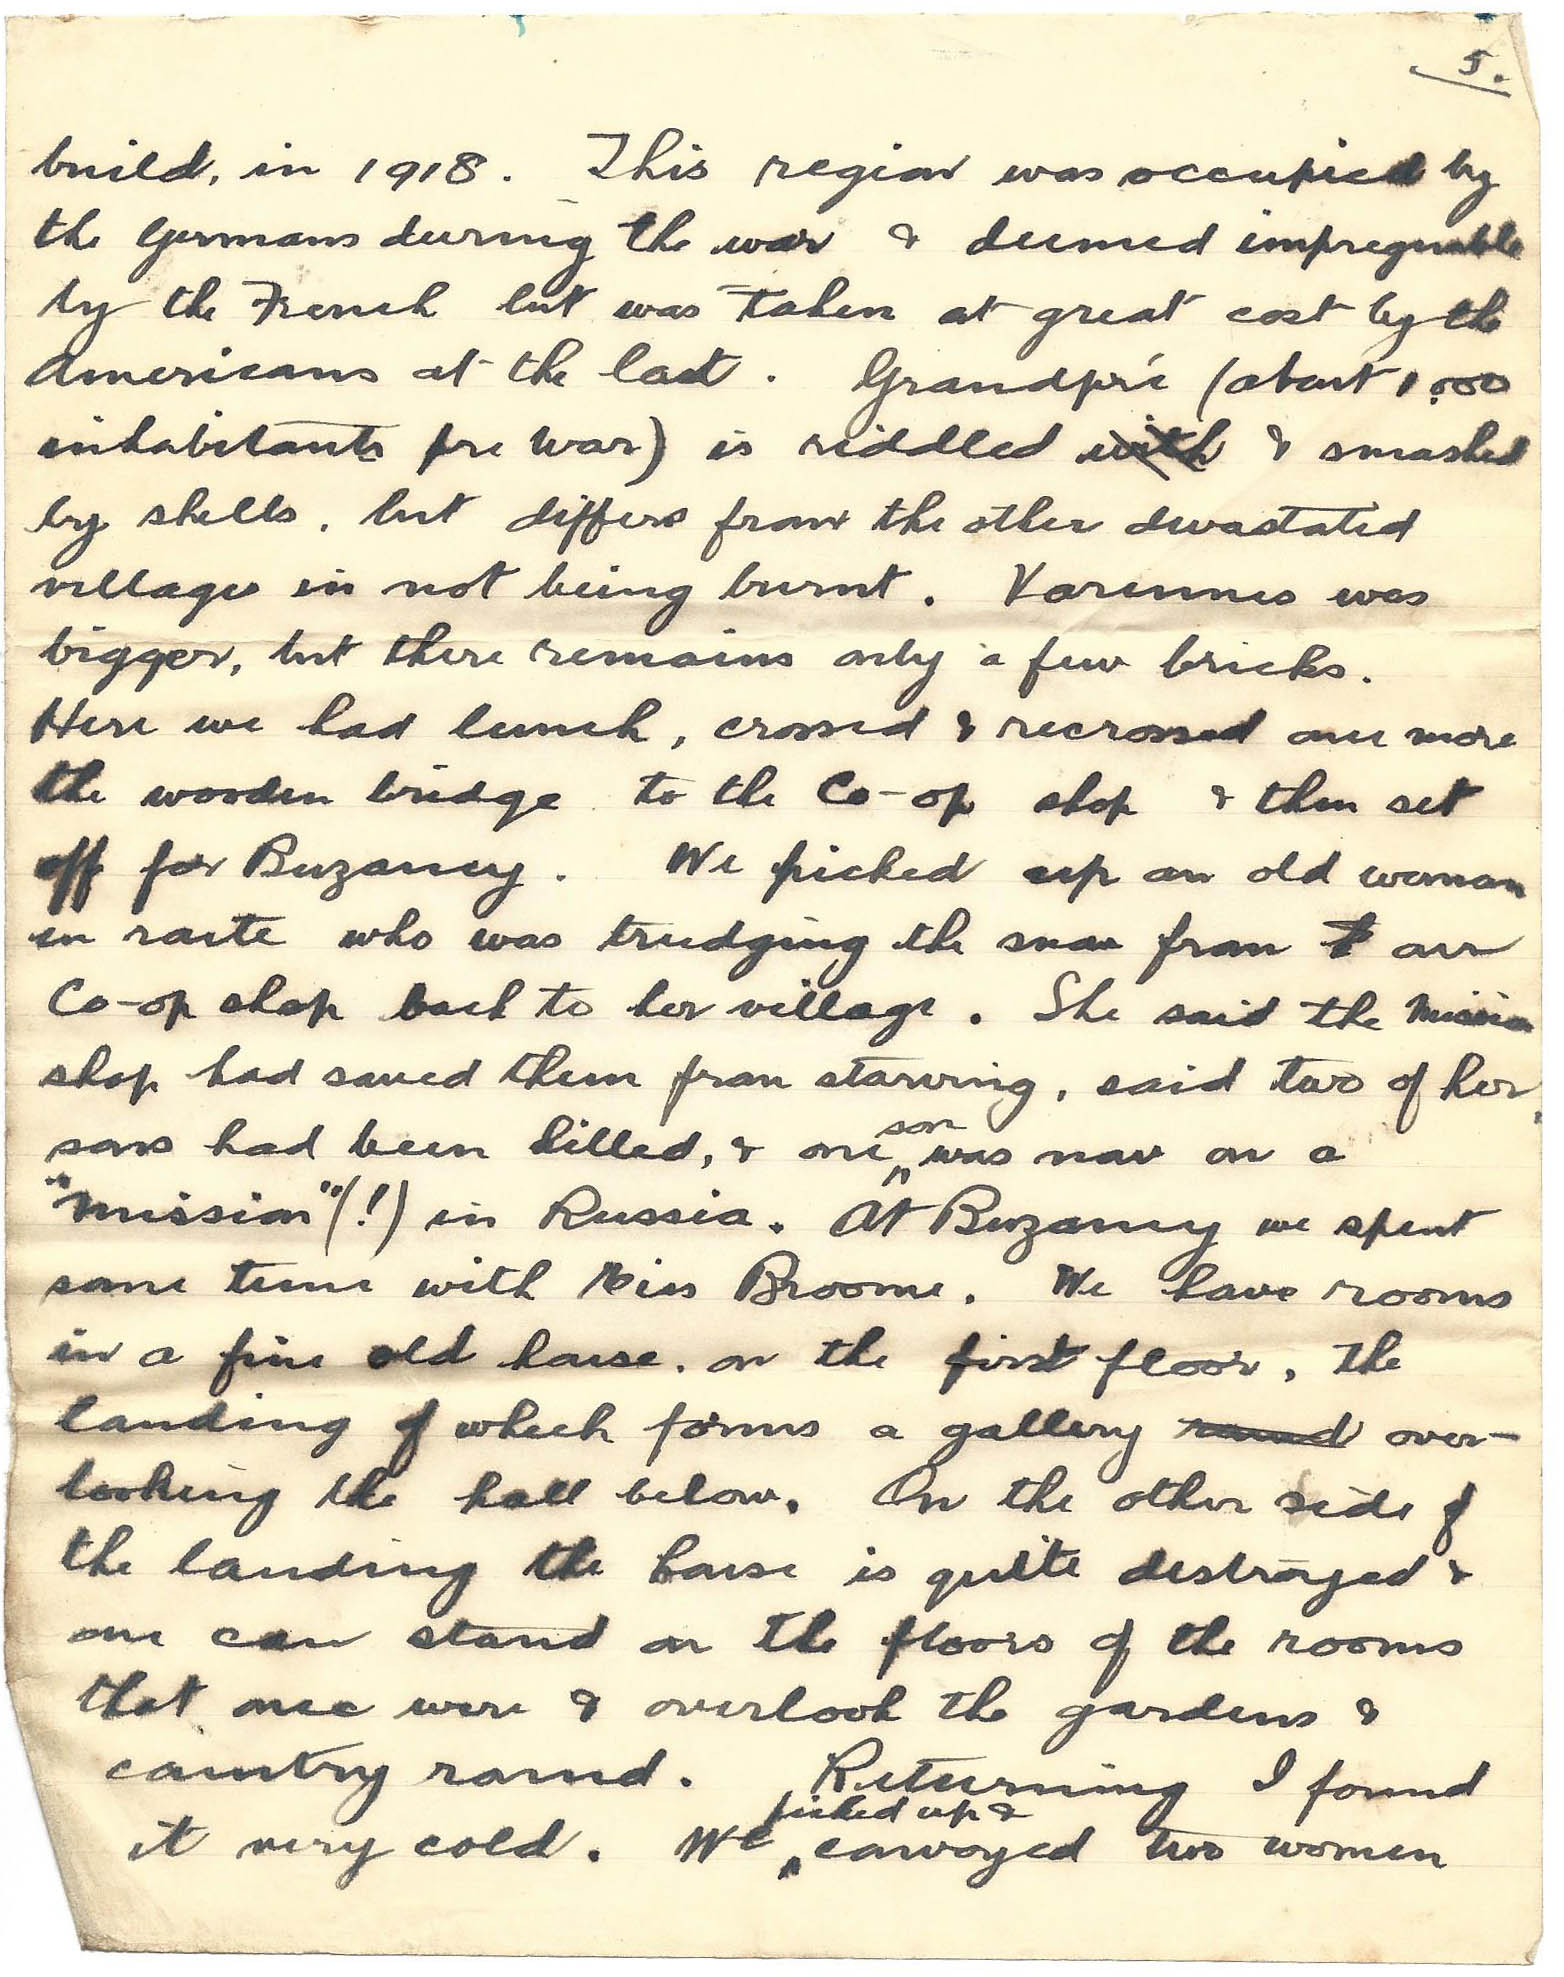 5.
build, in 1918. This region was occupied by
the Germans during the war & deemed impregnable
by the French but was taken at great cost by the
Americans at the last. Grandpré (about 1,000
inhabitants pre war) is riddled with & smashed
by shells, but differs from the other devastated
villages in not being burnt. Varennes was
bigger, but there remains only a few bricks.
Here we had lunch, crossed & recrossed once more
the wooden bridge to the Co-op shop & then set
off for Buzancy. We picked up an old woman
en route who was trudging the snow from t our
Co-op shop back to her village. She said the Mission
shop had saved them from starving, said two of her
sons had been killed, & one son was now on a
"mission" (!) in Russia. At Buzancy we spent
some time with Miss Broome. We have rooms
in a fine old house, on the first floor, the
landing of which forms a gallery round over-
looking the hall below. On the other side of
the landing the house is quite destroyed &
one can stand on the floors of the rooms
that once were & overlook the gardens &
country round. Returning I found
it very cold. We picked up & convoyed two women